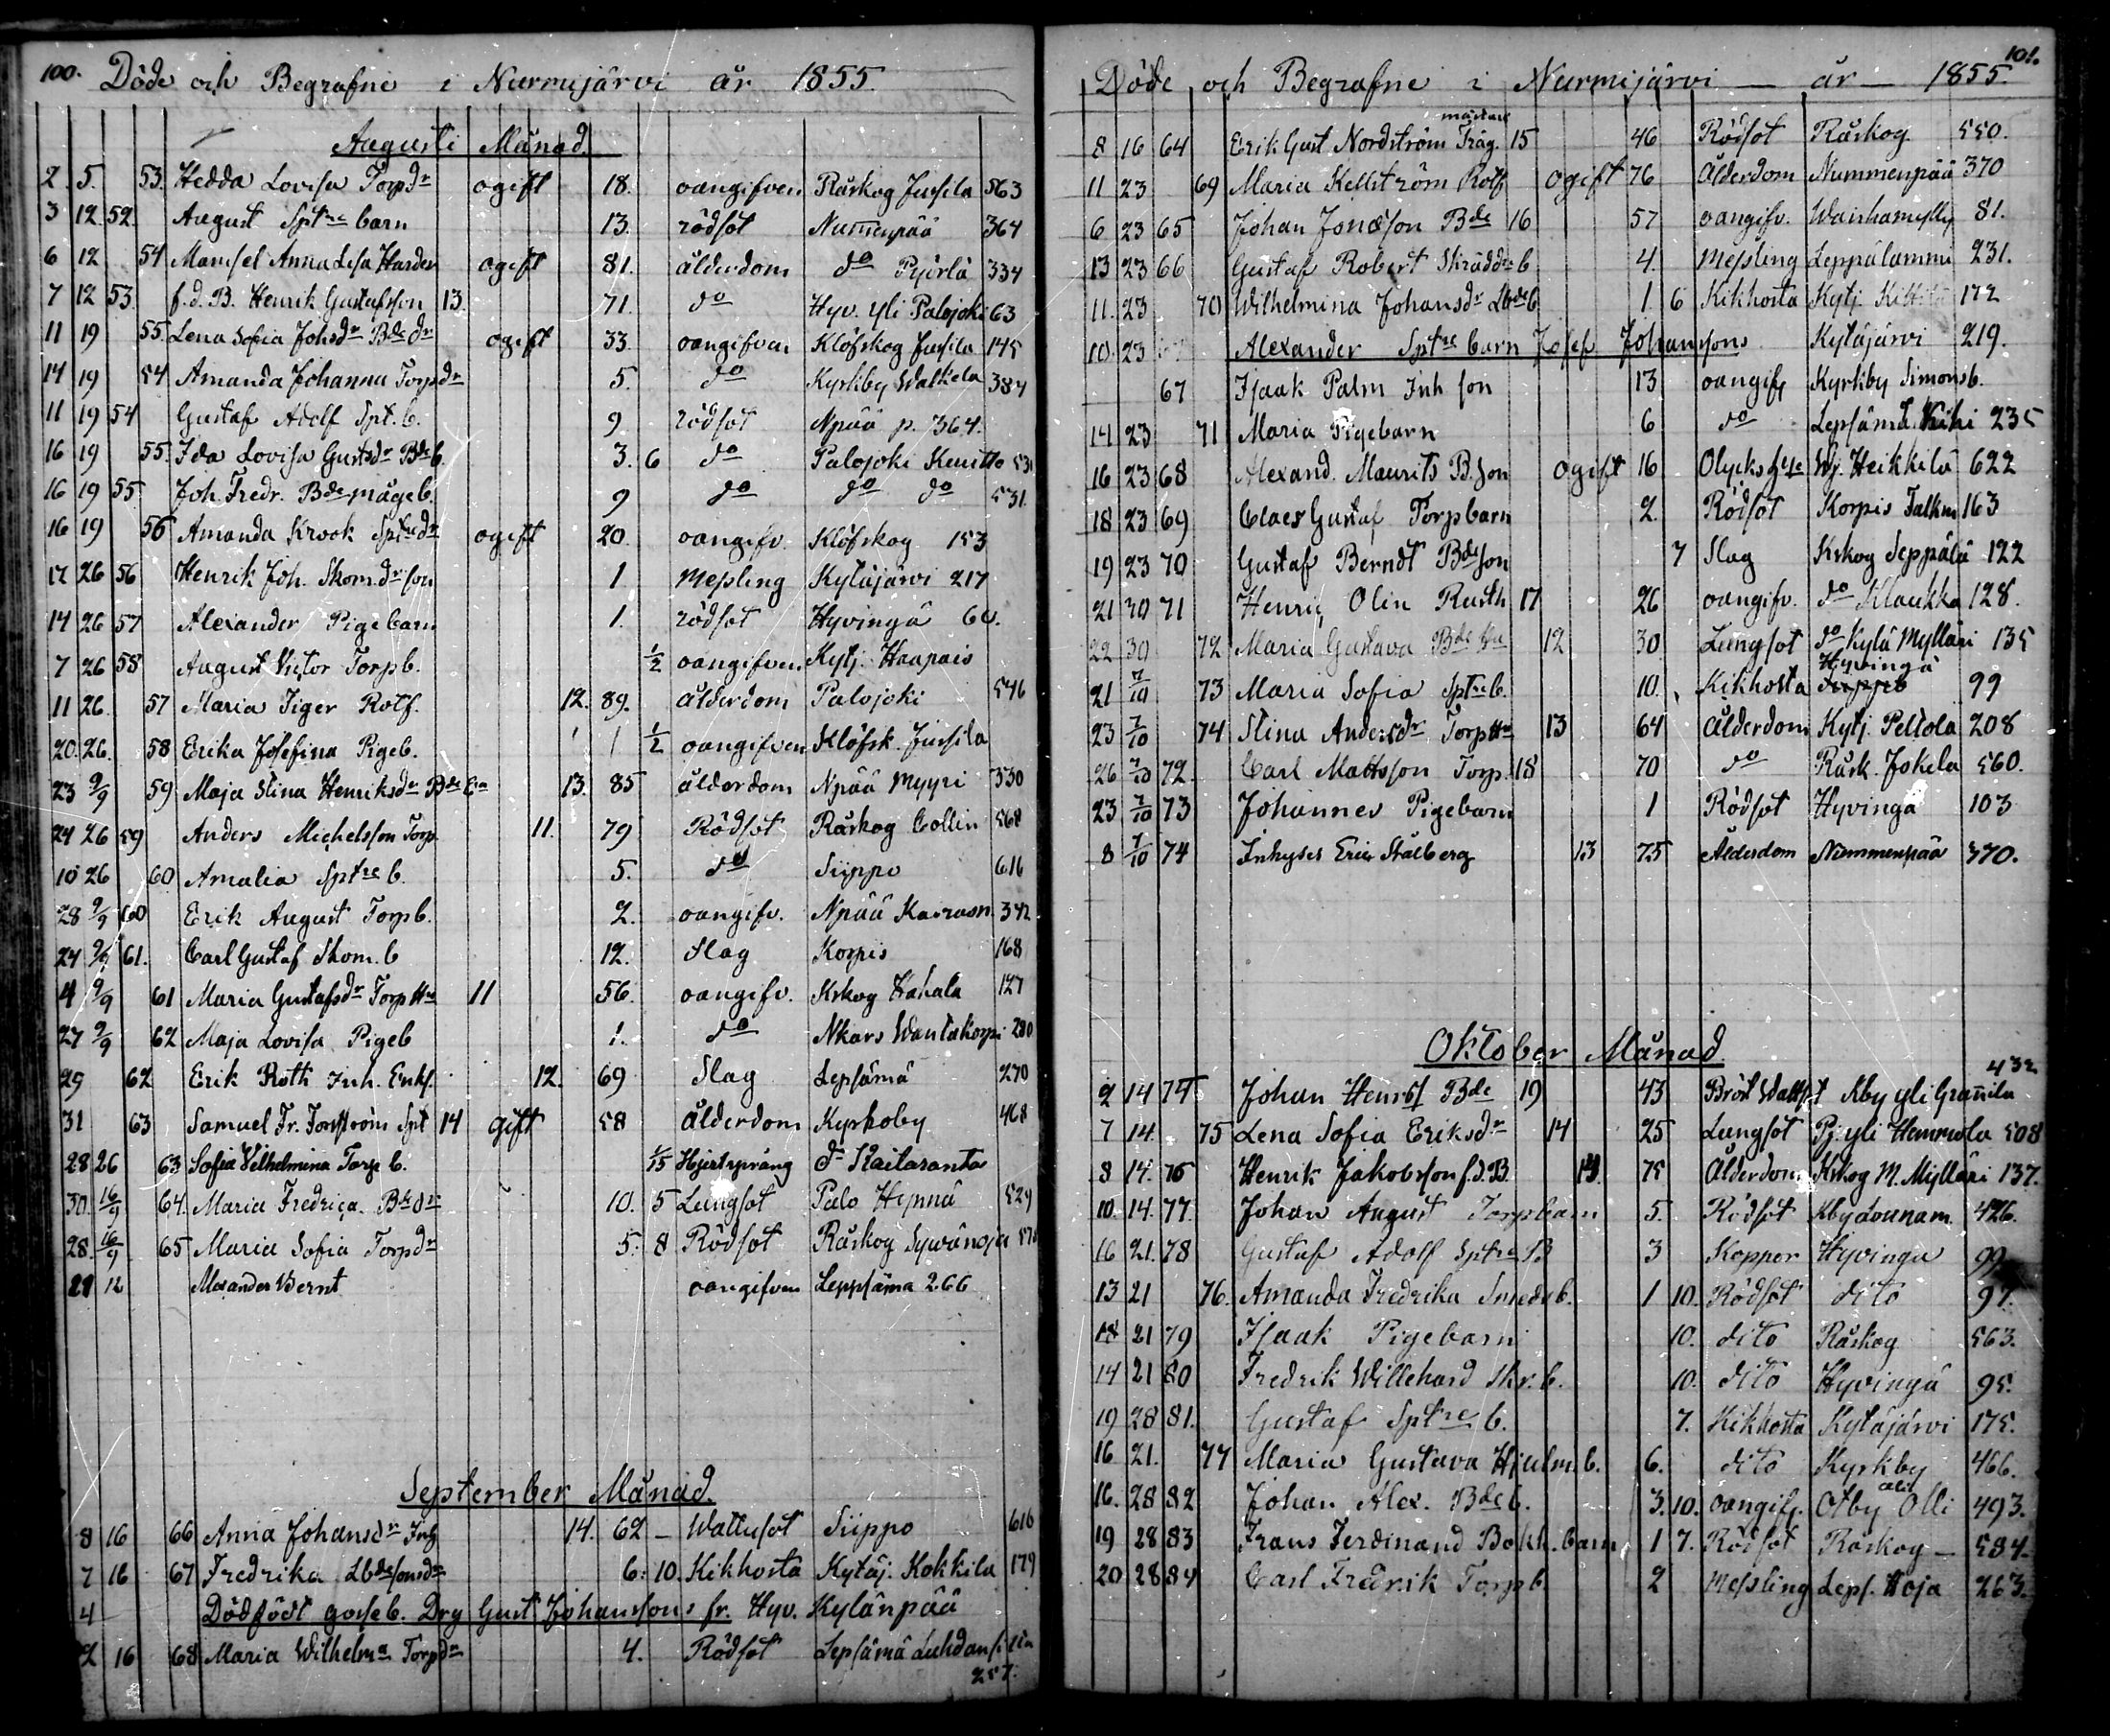 100. Döde och Begrafne i Nurmijärvi år 1855.
Augusti Månad.
2 5. 53. Hedda Lovisa Torpdr ogift 18. oangifven Råskog Jussila 563
3 12. 52. August Sptne barn 13. rödsot Nummenpää 364
6 12 54 Mamsel Anna Lisa Harder ogift 81. ålderdom do Pyörlä 334
7 12 53. f.d. B. Henrik Gustafsson 13. 71. do Hyv. Yli Palojoki 63
11 19 55. Lena Sofia Johsdr Bdedr ogift 33. oangifven Klöfskog Jussila 145
14 19 54 Amanda Johanna Torpdr 5. do Kyrkby Walkela 384
11 19 54 Gustaf Adolf Spt. b. 9 rödsot Npää p. 364.
16 19 55. Ida Lovisa Gustsdr Bdeb. 3. 6 do Palojoki Kenitto 531
16 19 55 Joh. Fredr. Bde mågeb. 9 do do do 531
16 19 56 Amanda Krook Sptnedr ogift 20. oangifv. Klöfskog 153
12 26 56 Henrik Joh. Skom.dr son 1 Messling Kytäjärvi 217
14 26 57 Alexander Pigebarn 1. rödsot Hyvingä 60.
7 26 58 August Victor Torpb. 1/2 oangifven Kytj. Haapais
11 26. 57 Maria Tiger Rotf. 12. 89. ålderdom Palojoki 546
20. 26. 58 Erika Josefina Pigeb. 1/2 oangifven Klöfsk. Jussila
23 9/9 59 Maja Stina Henriksdr Bde Ea 13. 85 ålderdom Npää Myyri 330
24 26 59 Anders Michelsson Torp. 11. 79 Rödsot Råskog Collin 568
10 26 60 Amalia Sptne b. 5. do Siippo 616
28 9/9 60 Erik August Torpb. 2. oangifv. Npää 342
24 9/9 61. Carl Gustaf Skom. b 12. Slag Korpis 168
4 9/9 61 Maria Gustafsdr Torp Hu 11 56. oangifv. Kskog Hahala 127
27 9/9 62 Maja Lovisa Pigeb 1. do Nkars Wantakorpi 280
29 62 Erik Roth Inh. Enkf. 12. 69 Slag Lepsämä 270
31 63 Samuel Fr. Forsström Spt 14 gift 58 Ålderdom Kyrkoby 468
28 26 63 Sofia Vilhelmina Torp b. 1/15 Hjertsprång do Raitaranta
30. 16/9 64. Maria Fredrica Bdedr 10. 5 Lungsot Palo Hynnä 529
28. 16/9 65 Maria Sofia Torpdr 5. 8 Rödsot Råskog Sywänoja
21 12 Alexander Bernt oangifven Leppsäma 266
September Månad.
8 16 66 Anna Johansdr Inh 14. 62 – Wattusot Siippo 616
7 16 67 Fredrika Lbdesonsdr 6. 10. Kikhosta Kytäj. Kokkila 179
4 Dödfödt gosseb. Drg Gust Johanssons fr. Hyv. Kylänpää
2 16 68 Maria Wilhelma Torpdr 4. Rödsot Lepsämä
257.
101.
Döde och Begrafne i Nurmijärvi – år – 1855
mästare
8 16 64 Erik Gust Nordström Träg. 15 46 Rödsot Råskog 550.
11 23 69 Maria Kellström Rotf ogift 76 Ålderdom Nummenpää 370
6 23 65 Johan Jonasson Bde 16 57 oangifv. Waishamylly 81.
13 23 66 Gustaf Robert Skräddreb 4. Messling Leppälammi 231.
11. 23 70 Wilhelmina Johansdr Lbdeb 1. 6 Kikhosta Kytj. Kittilä 172
10. 23 Alexander Sptne barn Josef Johanssons Kytäjärvi 219.
67 Isaak Palm Inh son 13 oangif. Kyrkby Simonsb.
14 23 71 Maria Pigebarn 6 do Lepsämä Kihi 235
16 23 68 Alexand. Maurits B.son ogift 16 Olyckshde Wj. Heikkilä 622
18 23 69 Claes Gustaf Torpbarn 2. Rödsot Korpis Talkm 163
19 23 70 Gustaf Berndt Bdeson 7 Slag Kskog Seppälä 122
21 30 71 Henric Olin Rusth 17 26 oangifv. do Klaukka 128.
22 30 72 Maria Gustava Bde Hu 12 30. Lungsot do Kylä Mylläri 135
Hyvingä
21 7/10 73 Maria Sofia Sptneb. 10. Kikhosta 99
23 7/10 74 Stina Andersdr Torp Hu 13 64 Ålderdom Kytj. Peltola 208
26 7/10 72. Carl Mattsson Torp. 18 70 do Råsk. Jokela 560.
23 7/10 73 Johannes Pigebarn 1 Rödsot Hyvingä 103
8 7/10 74 Inhyses Eric Stålberg 13 75 Ålderdom Nummenpää 370.
Oktober Månad
432
2 14 75 Johan Henrss Bde 19 43 Bröst Wattst Kby Yli Grannila
7 14. 75 Lena Sofia Eriksdr 14 25 Lungsot Pj. Yli Hemmola 508
8 14. 76 Henrik Jakobsson f.d.B. 19. 75 Ålderdom Kskog M. Mylläri 137.
10. 14. 77. Johan August Torpbarn 5. Rödsot Kby Lounam. 426.
16 21. 78 Gustaf Adolf Sptne B 3 Koppor Hyvinga 99
13 21 76. Amanda Fredrika Smedsb. 1 10. Rödsot dito 97.
18 21 79 Isaak Pigebarn 10. dito Råskog 563.
14 21 80 Fredrik Willehard Skr. b. 10. dito Hyvingä 95.
19 28 81. Gustaf Sptne b. 7. Kikhosta Kytäjärvi 175.
16. 21. 77 Maria Gustava Hjulm. b. 6. dito Kyrkby 466.
16. 28 82 Johan Alex. Bdeb. 3. 10. oangif. Otby Ali Olli 493.
19 28 83 Frans Ferdinand Bokh. barn 1 7. Rödsot Råskog – 584.
20 28 84 Carl Fredrik Torpb. 2 Messling Leps. Hoja 263.